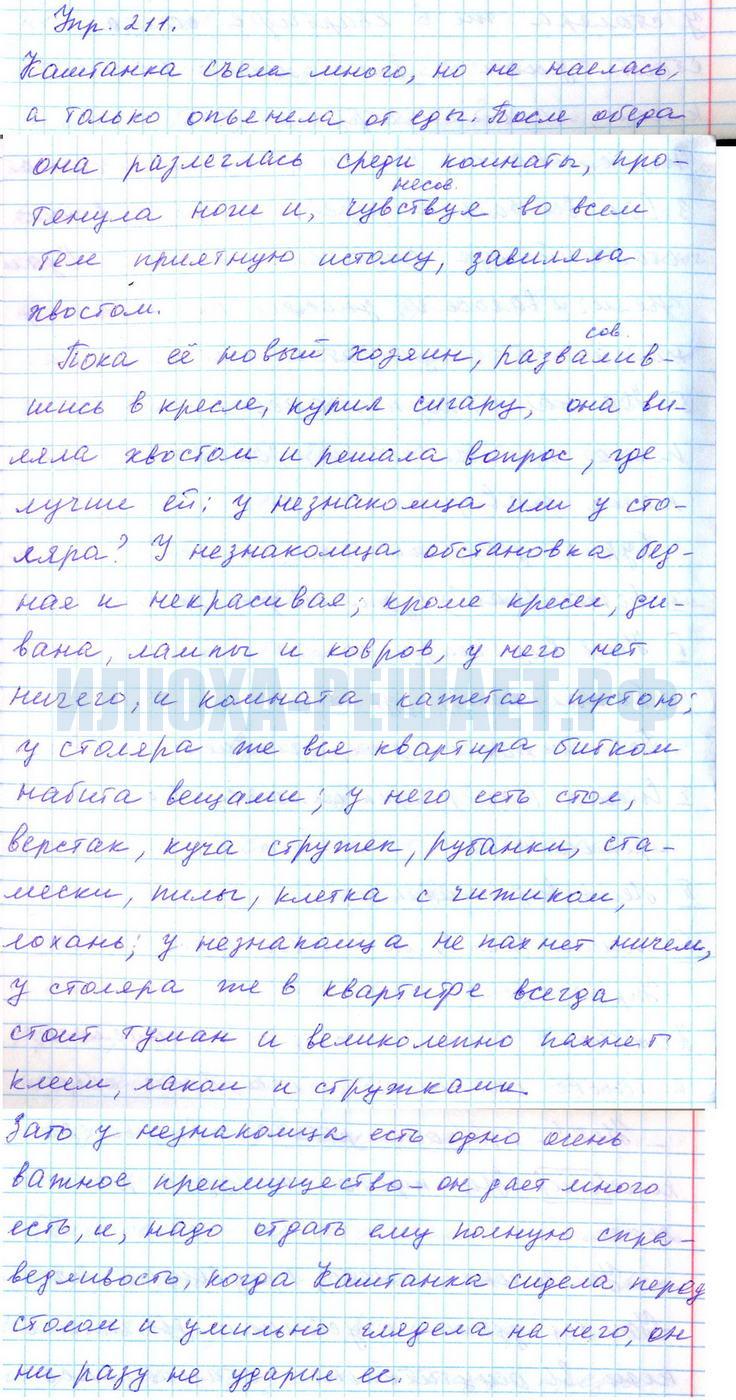 Упр. 211.
Каштанка съела много, но не наелась,
а только опьенела от еды. После обеда
она разлеглась среди комнаты, про-
несов.
тянула ноги и, чувствуя во всем
теле приятную истому, завиляла
хвостом.
сов.
Пока её новый хозяин, развалив-
шись в кресле, курил сигару, она ви-
ляла хвостом и решала вопрос, где
лучше ей: у незнакомца или у сто-
ляра? У незнакомца обстановка бед-
ная и некрасивая; кроме кресел, ди-
вана, лампы и ковров, у него нет
ИЛЮХА-РЕШАЕТ.РФ
ничего, и комната кажется пустою;
у столяра же вся квартира битком
набита вещами; у него есть стол,
верстак, куча стружек, рубанки, ста-
мески, пилы, клетка с чижиком,
лохань; у незнакомца не пахнет ничем,
у столяра же в квартире всегда
стоит туман и великолепно пахнет
клеем, лаком и стружками.
Зато у незнакомца есть одно очень
важное преимущество – он дает много
есть, и, надо отдать ему полную спра-
ведливость, когда Каштанка сидела перед
столом и умильно глядела на него, он
ни разу не ударил ее.